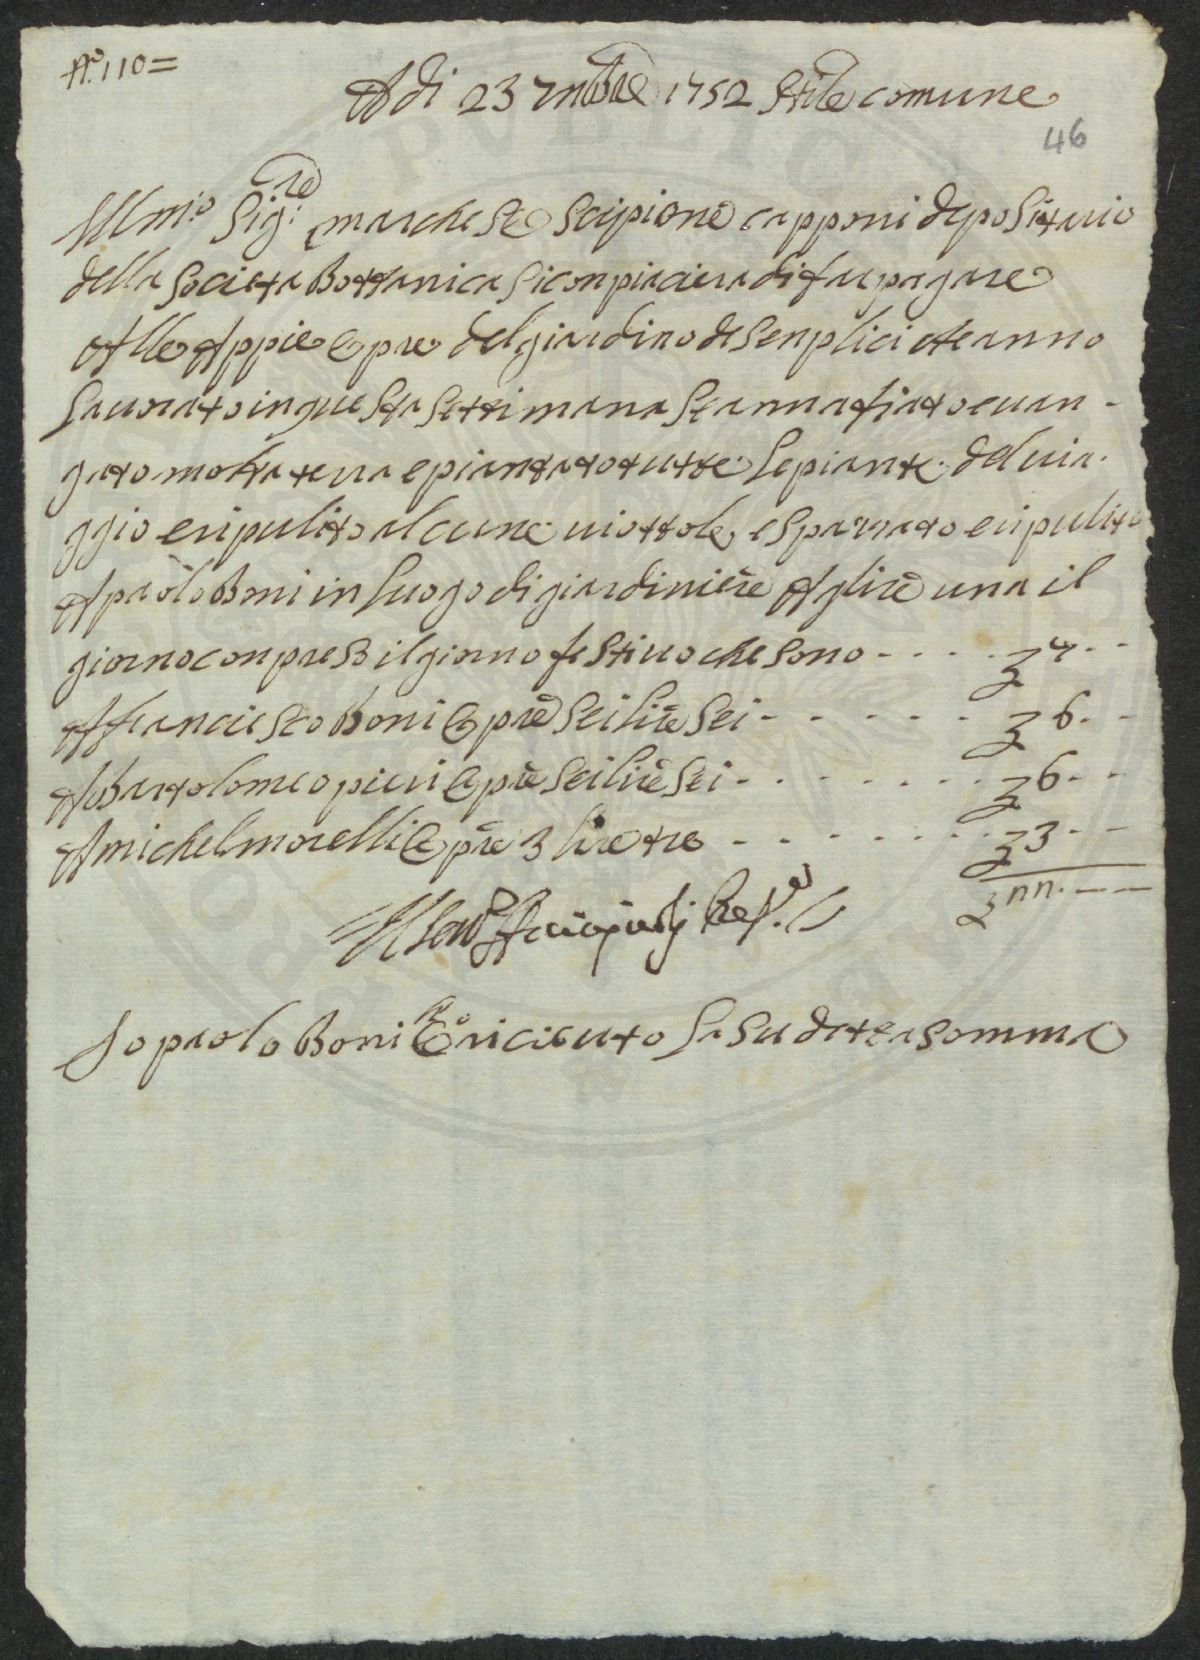 N.o 110=
A di 23 7mbre 1752 stile comune
46
Illmi.o Sig.re marchese Scipione capponi depositario
della societa Bottanica si conpiaciera di far pagare
Alle Appie opre del giardino de senplici che anno
lauorato in questa settimana
gato molta terra e piantato tutte le piante del uia-
ggio e ripulito alcune uiottole e e ripulito
A paolo Boni in luogo di giardiniere A lire una il
giorno conpreso il giorno festiuo che sono - - - - - 7 - -
A franciesco Boni opre sei lire sei - - - - - - 6 - -
A bartolomeo pieri opre sei lire sei - - - - - - - 6 - -
A michel morelli opre 3 lire tre - - - - - - - 3 - -
Io paolo Boni o riceuto la su detta somma